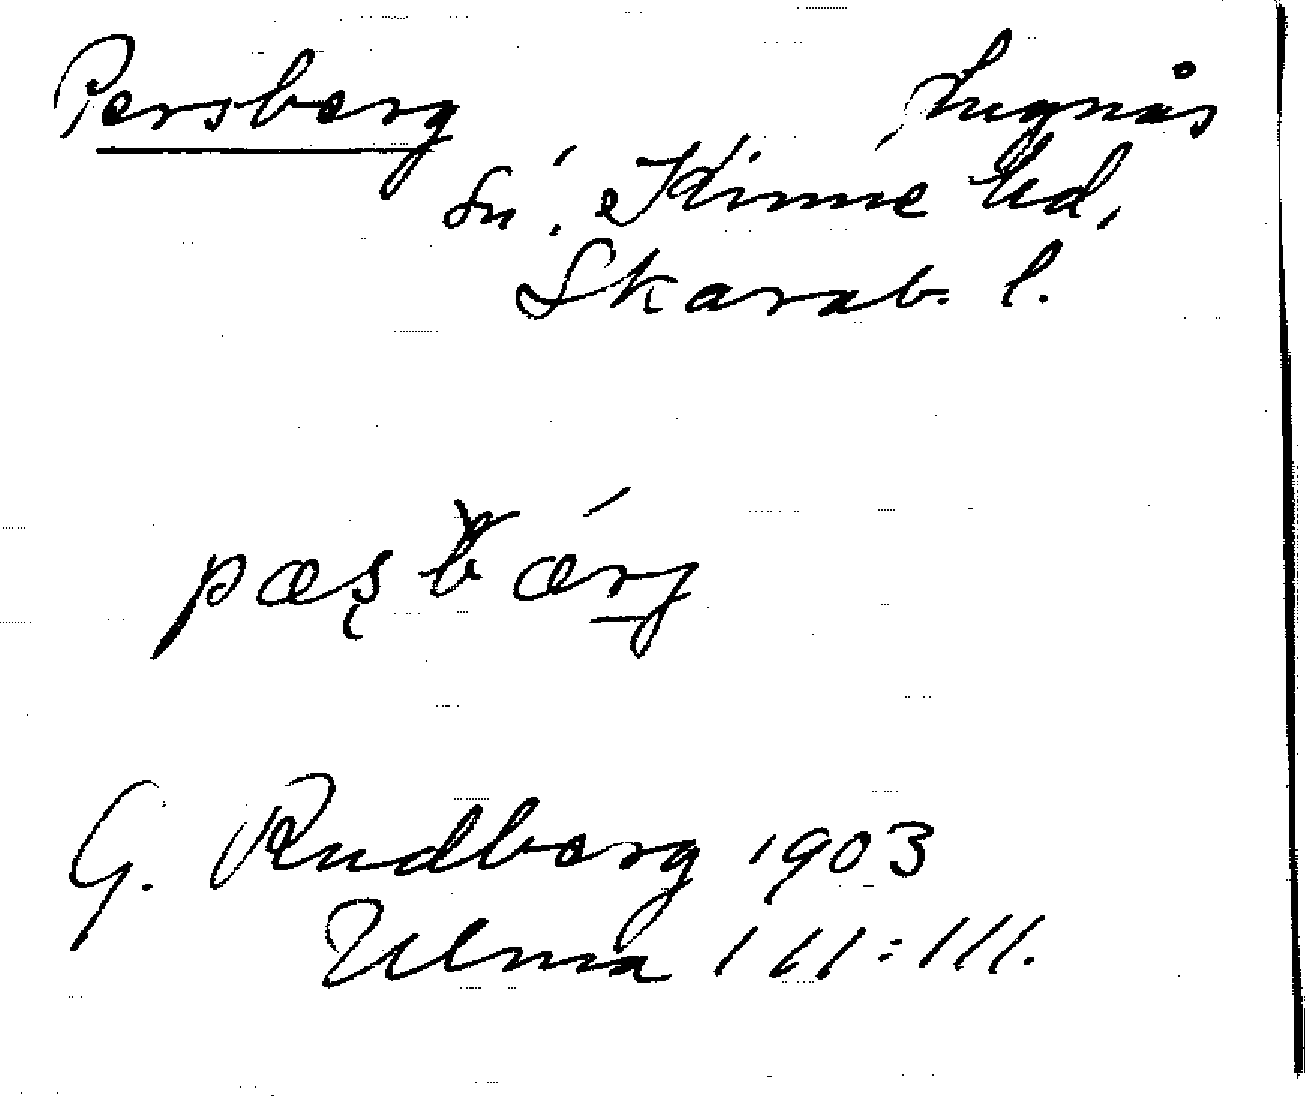 Persberg Lugnås
sn. Kinne hd,
Skarab. l.
pæs̨bærj
G. Rudberg 1903
Ulma 161:111.